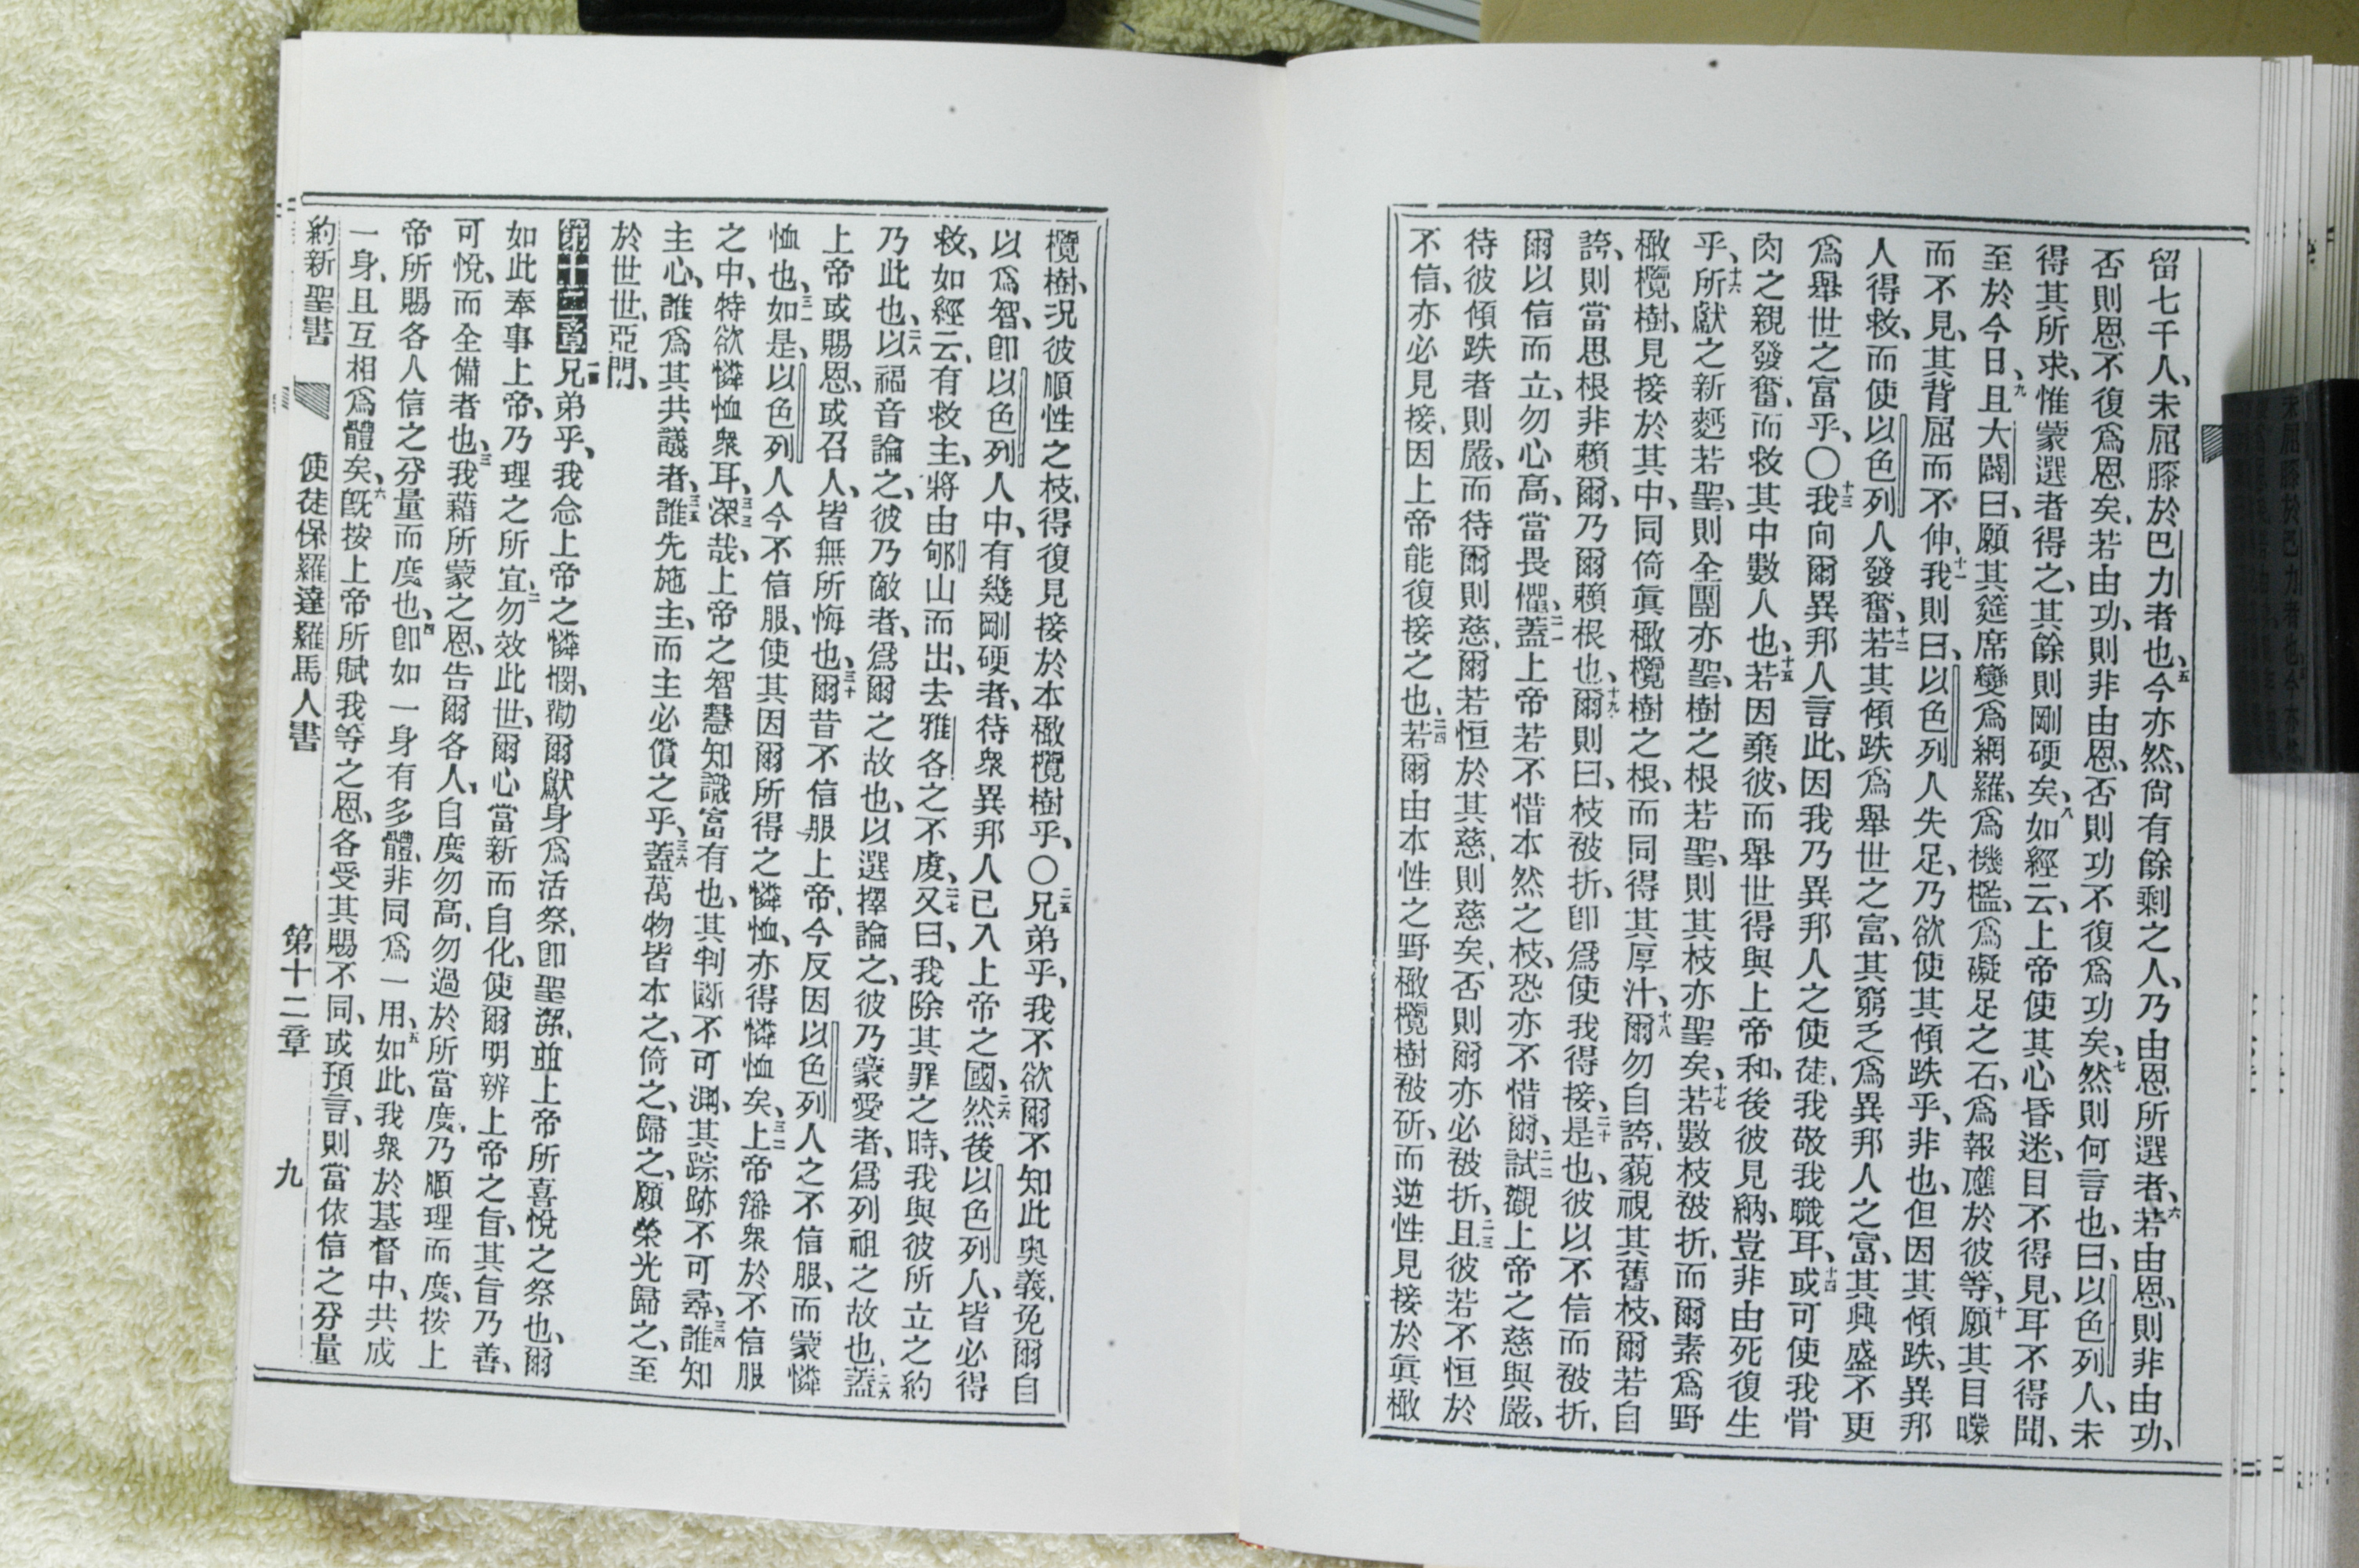 留七千人、未屈膝於巴力者也、五今亦然、尙有餘剩之人、乃由恩所選者、六若由恩、則非由功、
否則恩不復爲恩矣、若由功、則非由恩、否則功不復爲功矣、七然則何言也、曰、以色列人、未
得其所求、惟蒙選者得之、其餘則剛硬矣、八如經云、上帝使其心昏迷、目不得見、耳不得聞、
至於今日、九且大闢曰、願其筵席變爲網羅、爲機檻、爲礙足之石、爲報應於彼等、十願其目矇
而不見、其背屈而不伸、十一我則曰、以色列人失足、乃欲使其傾跌乎、非也、但因其傾跌、異邦
人得救、而使以色列人發奮、十二若其傾跌爲舉世之富、其窮乏爲異邦人之富、其興盛不更
爲舉世之富乎、〇十三我向爾異邦人言此、因我乃異邦人之使徒、我敬我職耳、十四或可使我骨
肉之親發奮、而救其中數人也、十五若因棄彼、而舉世得與上帝和、後彼見納、豈非由死復生
乎、十六所獻之新麪若聖、則全團亦聖、樹之根若聖、則其枝亦聖矣、十七若數枝被折、而爾素爲野
橄欖樹、見接於其中、同倚眞橄欖樹之根、而同得其厚汁、十八爾勿自誇、藐視其舊枝、爾若自
誇、則當思根非賴爾、乃爾賴根也、十九爾則曰、枝被折、卽爲使我得接、二十是也、彼以不信而被折、
爾以信而立、勿心高、當畏懼、二一蓋上帝若不惜本然之枝、恐亦不惜爾、二二試觀上帝之慈與嚴、
待彼傾跌者則嚴、而待爾則慈、爾若恒於其慈、則慈矣、否則爾亦必被折、二三且彼若不恒於
不信、亦必見接、因上帝能復接之也、二四若爾由本性之野橄欖樹被斫、而逆性見接於眞橄
欖樹、況彼順性之枝、得復見接於本橄欖樹乎、〇二五兄弟乎、我不欲爾不知此奥義、免爾自
以爲智、卽以色列人中、有幾剛硬者、待衆異邦人已入上帝之國、二六然後以色列人、皆必得
救、如經云、有救主、將由郇山而出、去雅各之不虔、二七又曰、我除其罪之時、我與彼所立之約
乃此也、二八以福音論之、彼乃敵者、爲爾之故也、以選擇論之、彼乃蒙愛者、爲列祖之故也、二九蓋
上帝或賜恩、或召人、皆無所悔也、三十爾昔不信服上帝、今反因以色列人之不信服、而蒙憐
恤也、三一如是、以色列人今不信服、使其因爾所得之憐恤、亦得憐恤矣、三二上帝籓衆於不信服
之中、特欲憐恤衆耳、三三深哉、上帝之智慧知識富有也、其判斷不可測、其踪跡不可尋、三四誰知
主心、誰爲其共議者、三五誰先施主、而主必償之乎、三六蓋萬物皆本之、倚之、歸之、願榮光歸之、至
於世世、亞門、
第十二章 一兄弟乎、我念上帝之憐憫、勸爾獻身爲活祭、卽聖潔、並上帝所喜悅之祭也、爾
如此奉事上帝、乃理之所宜、二勿效此世、爾心當新而自化、使爾明辨上帝之旨、其旨乃善、
可悅、而全備者也、三我藉所蒙之恩、告爾各人、自度勿高、勿過於所當度、乃順理而度、按上
帝所賜各人信之分量而度也、四卽如一身有多體、非同爲一用、五如此、我衆於基督中、共成
一身、且互相爲體矣、六旣按上帝所賦我等之恩、各受其賜不同、或預言、則當依信之分量
約新聖書 使徒保羅達羅馬人書 第十二章 九